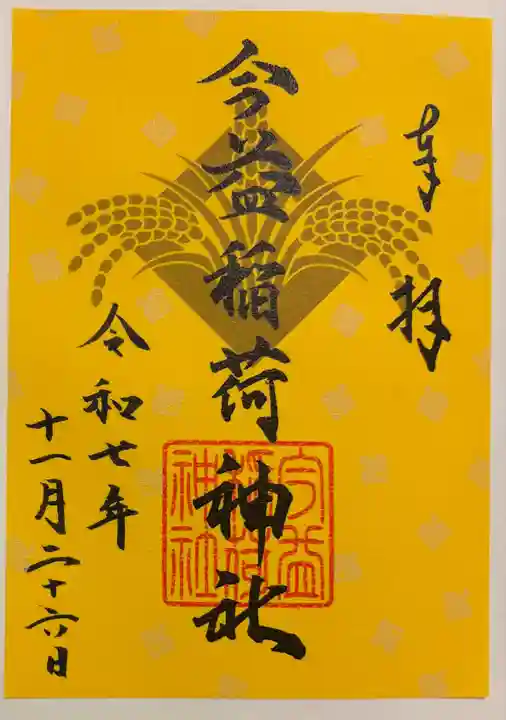 奉拝
今益稲荷神社
今益
稲荷
神社
令和七年
十一月二十六日